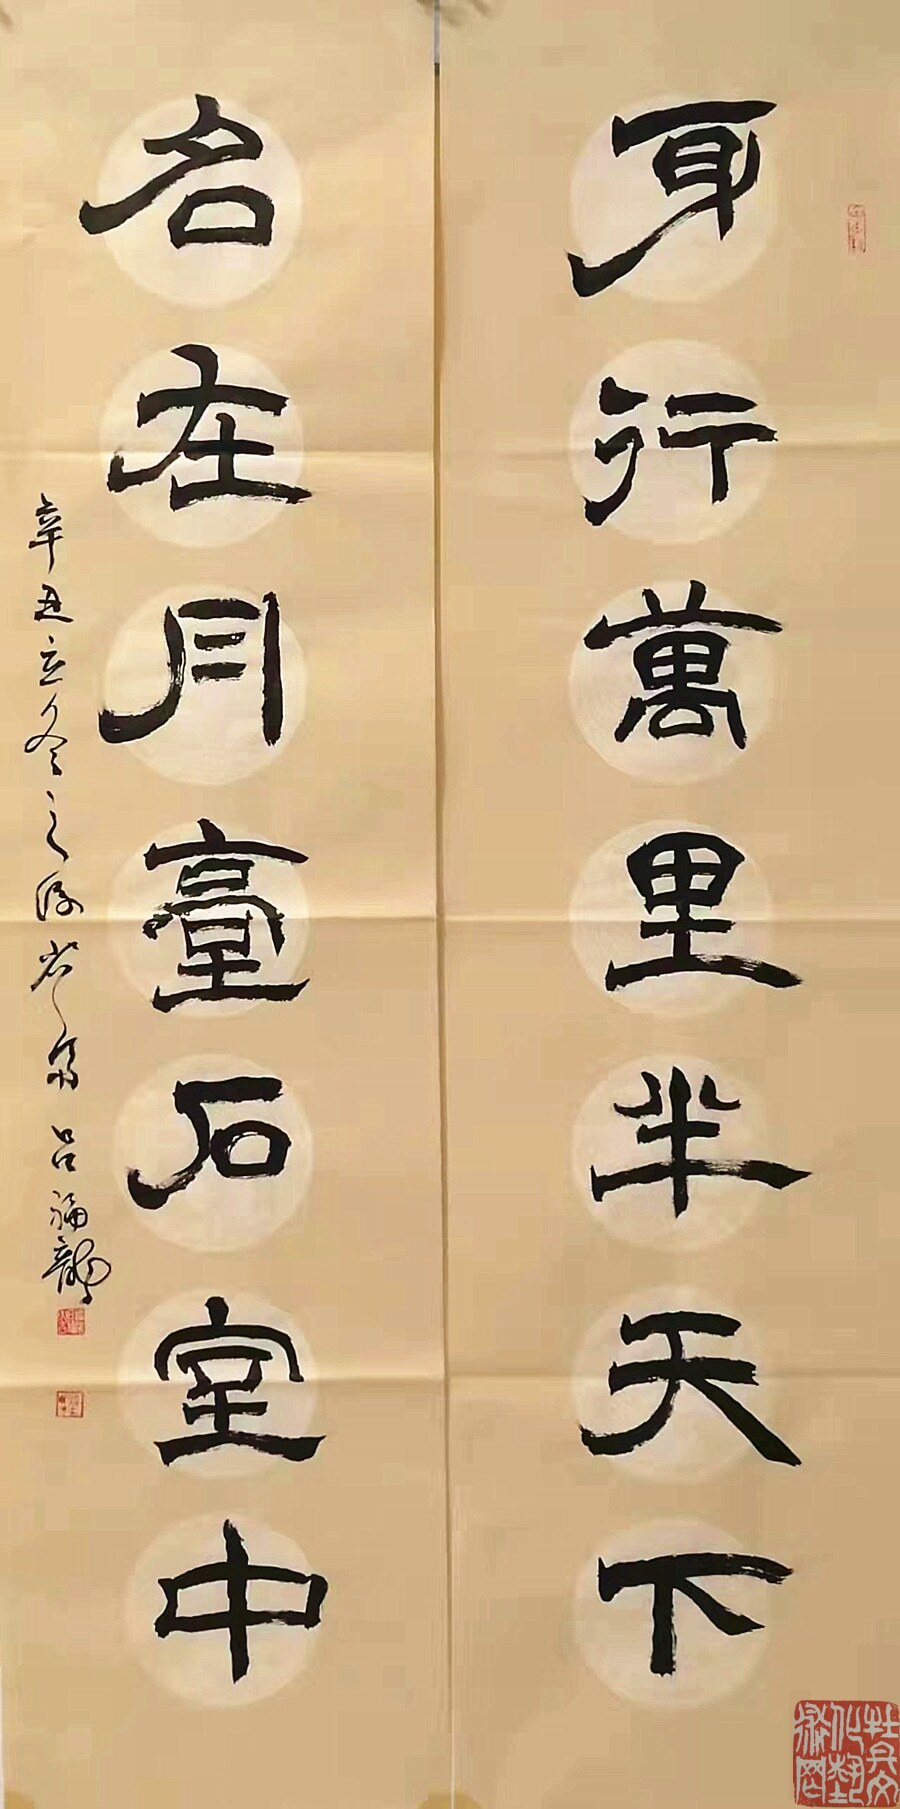 身行萬里半天下
名在月臺石室中
辛丑立冬之後 呂福龍